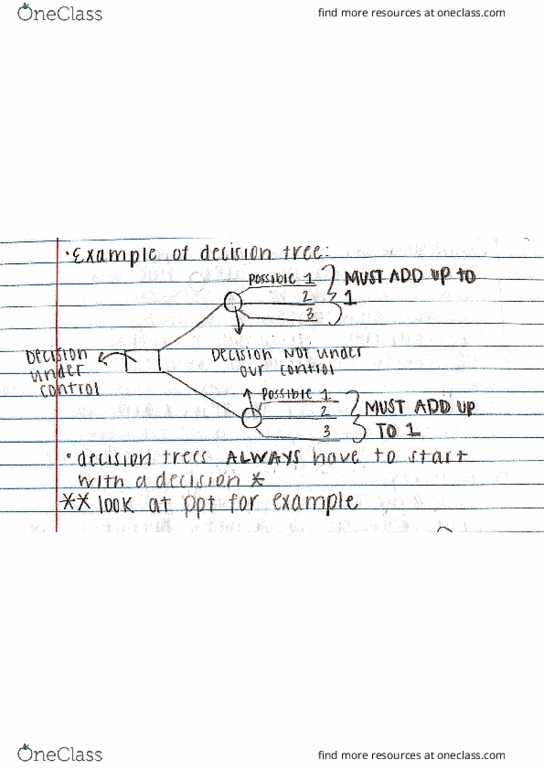 OneClass
find more resources at oneclass.com
• Example of decision tree:
POSSIBLE 1
2
3
MUST ADD UP TO
1
DECISION
UNDER
CONTROL
DECISION NOT UNDER
OUR CONTROL
POSSIBLE 1
2
3
MUST ADD UP
TO 1
• decision trees ALWAYS have to start
with a decision *
** look at ppt for example
OneClass
find more resources at oneclass.com